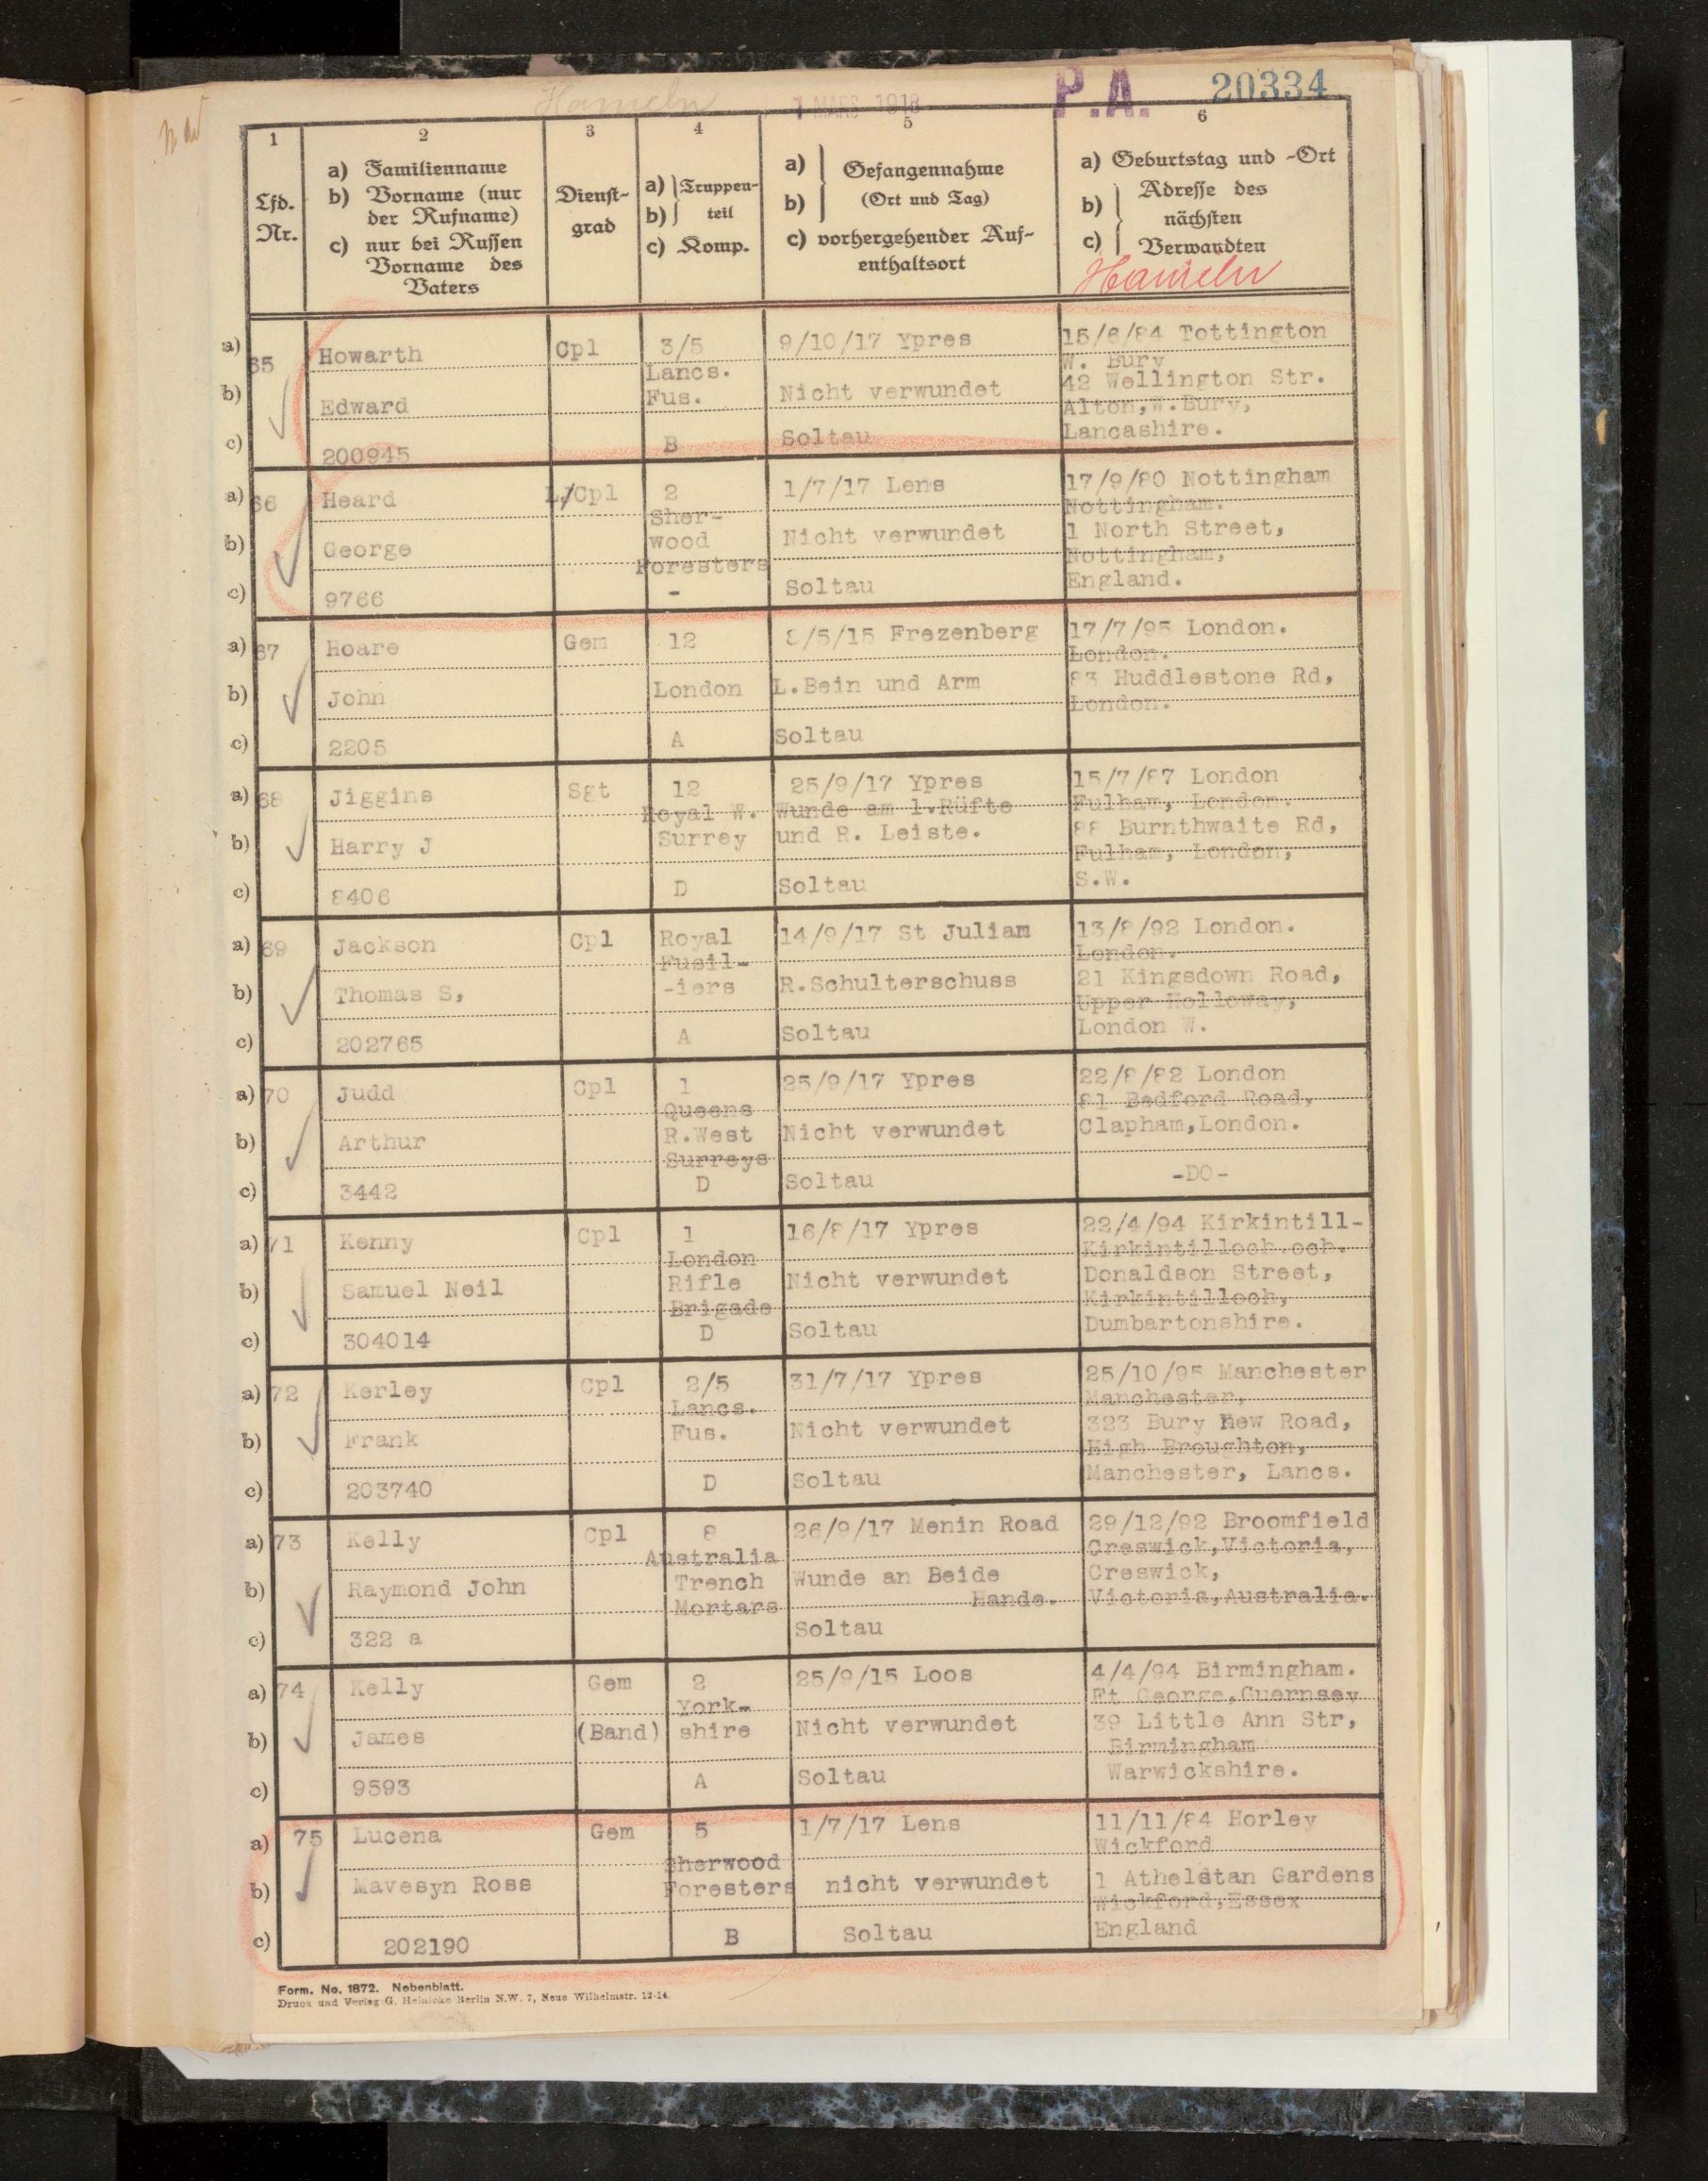 Hameln
1 MARS 1918
P.A. 20334
1
2
3
4
5
6
Lfd.
Nr.
a) Familienname
b) Vorname (nur
der Rufname)
c) nur bei Russen
Vorname des
Vaters
Dienst-
grad
a) Truppen-
b) teil
c) Komp.
a) Gefangennahme
b) (Ort und Tag)
c) vorhergehender Auf-
enthaltsort
a) Geburtstag und -Ort
Adresse des
b) nächsten
c) Verwandten
Hameln
a) 65
b)
c)
Howarth
Edward
200945
Cpl
3/5
Lancs.
Fus.
B
9/10/17 Ypres
Nicht verwundet
Soltau
15/6/84 Tottington
W. Bury
42 Wellington Str.
Alton,W.Bury,
Lancashire.
a) 66
b)
c)
Heard
George
9766
L/Cpl
2
Sher-
wood
Foresters
-
1/7/17 Lens
Nicht verwundet
Soltau
17/9/80 Nottingham
Nottingham.
1 North Street,
Nottingham,
England.
a) 67
b)
c)
Hoare
John
2205
Gem
12
London
A
8/5/15 Frezenberg
L.Bein und Arm
Soltau
17/7/95 London.
London.
83 Huddlestone Rd,
London.
a) 68
b)
c)
Jiggins
Harry J
8406
Sgt
12
Royal W.
Surrey
D
25/9/17 Ypres
Wunde am l.Rüfte
und R. Leiste.
Soltau
15/7/87 London
Fulham, London.
88 Burnthwaite Rd,
Fulham, London,
S.W.
a) 69
b)
c)
Jackson
Thomas S,
202765
Cpl
Royal
Fusil-
-iers
A
14/9/17 St Juliam
R.Schulterschuss
Soltau
13/8/92 London.
London.
21 Kingsdown Road,
Upper Holloway,
London W.
a) 70
b)
c)
Judd
Arthur
3442
Cpl
1
Queens
R.West
Surreys
D
25/9/17 Ypres
Nicht verwundet
Soltau
22/8/82 London
81 Bedford Road,
Clapham,London.
-DO-
a) 71
b)
c)
Kenny
Samuel Neil
304014
Cpl
1
London
Rifle
Brigade
D
16/8/17 Ypres
Nicht verwundet
Soltau
22/4/94 Kirkintill-
Kirkintilloch.och.
Donaldson Street,
Kirkintilloch,
Dumbartonshire.
a) 72
b)
c)
Kerley
Frank
203740
Cpl
2/5
Lancs.
Fus.
D
31/7/17 Ypres
Nicht verwundet
Soltau
25/10/95 Manchester
Manchester,
323 Bury New Road,
High Broughton,
Manchester, Lancs.
a) 73
b)
c)
Kelly
Raymond John
322 a
Cpl
8
Australia
Trench
Mortars
26/9/17 Menin Road
Wunde an Beide
Hande.
Soltau
29/12/92 Broomfield
Creswick,Victoria,
Creswick,
Victoria,Australia.
a) 74
b)
c)
Kelly
James
9593
Gem
(Band)
2
York-
shire
A
25/9/15 Loos
Nicht verwundet
Soltau
4/4/94 Birmingham.
Ft George,Guernsey
39 Little Ann Str,
Birmingham
Warwickshire.
a) 75
b)
c)
Lucena
Mavesyn Ross
202190
Gem
5
Sherwood
Foresters
B
1/7/17 Lens
nicht verwundet
Soltau
11/11/84 Horley
Wickford
1 Athelstan Gardens
Wickford,Essex
England
Form. No. 1872. Nebenblatt.
Druck und Verlag G. Heinicke Berlin N.W. 7, Neue Wilhelmstr. 12-14.